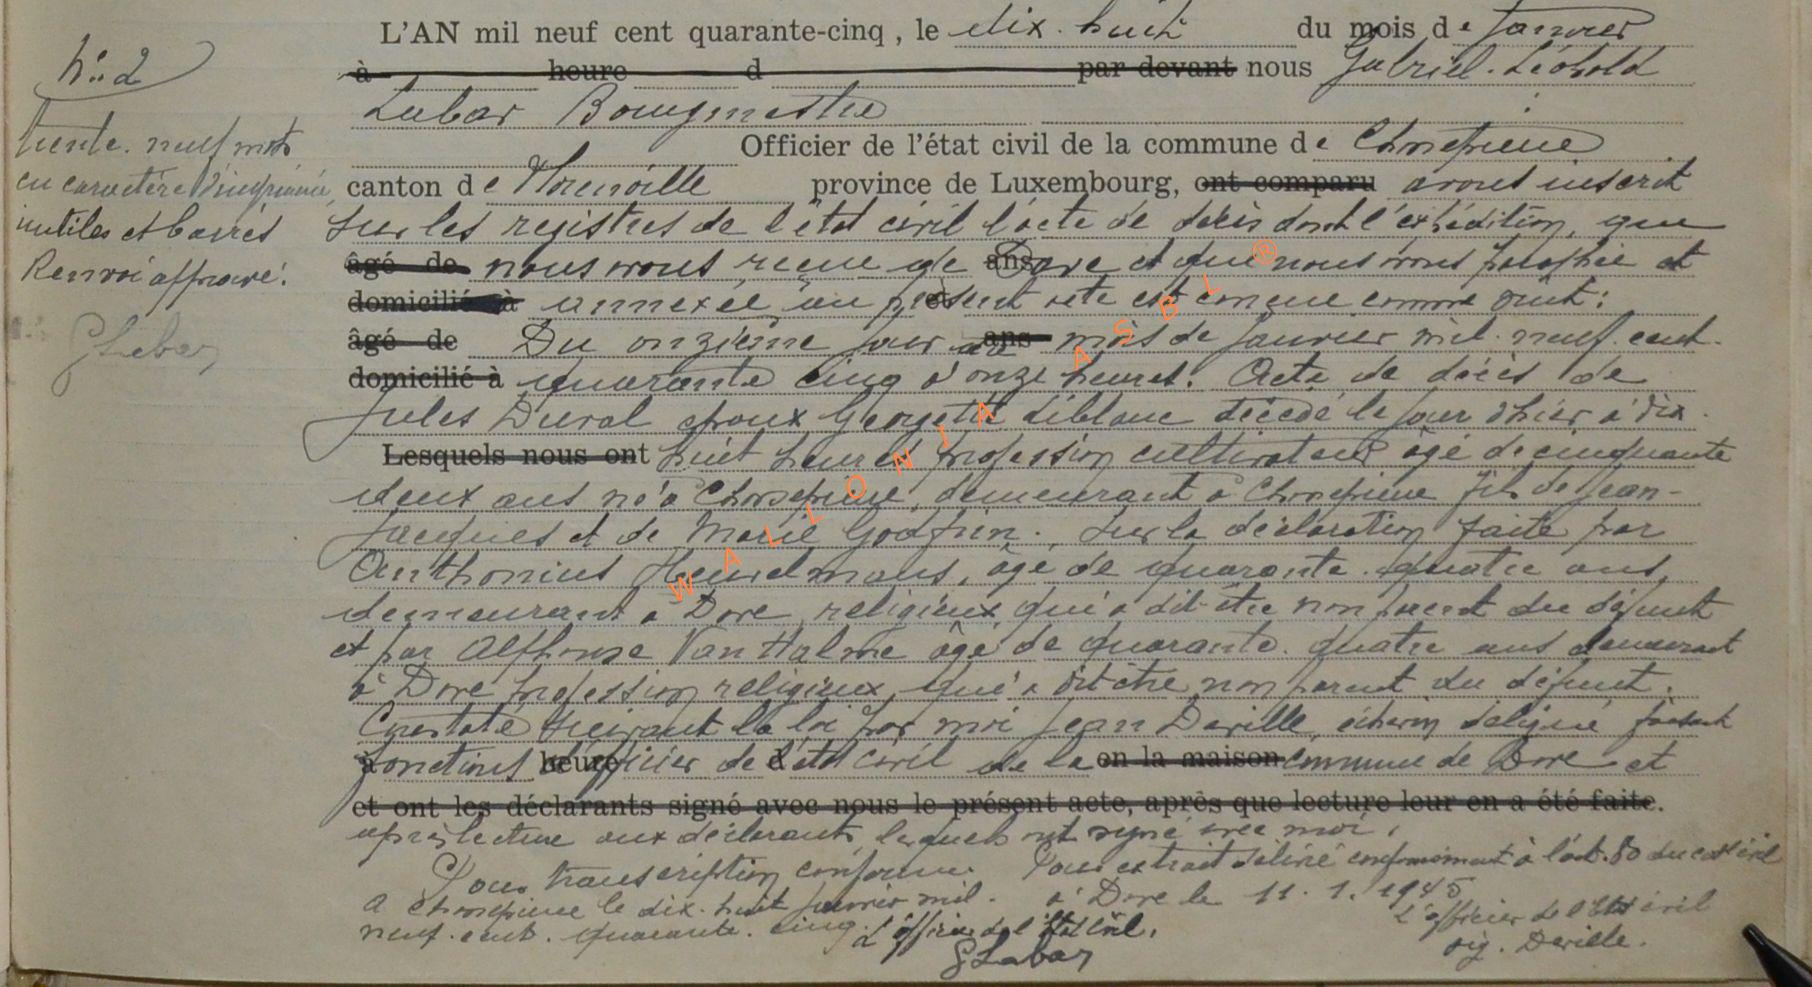 L'AN mil neuf cent quarante-cinq, le dix-huit du mois de Janvier
à heure d par devant nous Gabriel-Léopold
Labar Bourgmestre
N° 2
Officier de l'état civil de la commune de
trente-neuf mots
en caractère d'imprimerie,
inutiles et barrés
Renvoi approuvé.
GLabar
canton de province de Luxembourg, ont comparu avons inscrit
sur les registres de l'état civil l'acte de décès dont l'expédition, que
âgé de nous avons reçue de ans et que nous avons paraphée et
domicilié à annexée au présent acte est conçue comme suit :
âgé de Du onzième jour du ans mois de Janvier mil-neuf-cent-
domicilié à quarante cinq à onze heures. Acte de décès de
Jules Duval époux Georgette Leblanc décédé le jour d'hier à dix-
Lesquels nous ont huit heures, profession cultivateur âgé de cinquante
deux ans né à demeurant à fils de Jean-
Jacques et de Marie Godfrin. Sur la déclaration faite par
Anthonius âgé de quarante-quatre ans,
demeurant à religieux, qui a dit être non parent du défunt
et par Alphonse Van âgé de quarante-quatre ans demeurant
à profession religieux, qui a dit être non parent du défunt.
Constaté suivant la loi par moi Jean Deville, échevin délégué faisant
à fonctions heure d'officier de l'état civil de la en la maison commune de et
et ont les déclarants signé avec nous le présent acte, après que lecture leur en a été faite.
après lecture aux déclarants, lesquels ont signé avec moi.
Pour transcription conforme. Pour extrait délivré conformément à l'art. 80 du code civil
A le dix-huit janvier mil- à le 11.1.1945
neuf-cent-quarante-cinq. L'officier de l'Etat Civil. L'officier de l'Etat civil
GLabar sig. Deville.
WALLONIA ASBL ®